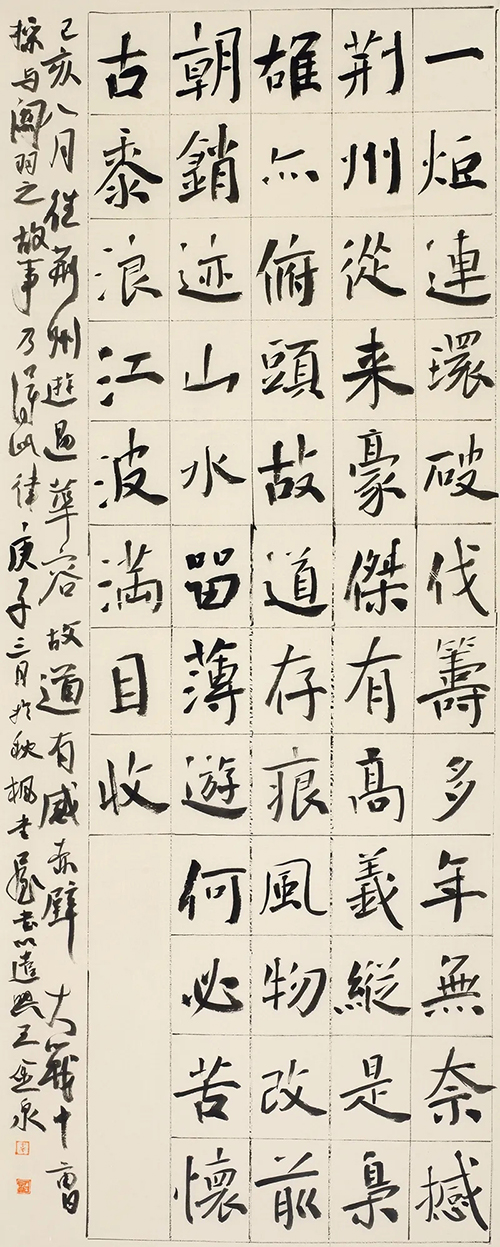 一炬連環破伐籌多年無奈撼
荆州從来豪傑有高義縱是梟
雄亦俯頭故道存痕風物改前
朝銷迹山水留薄遊何必苦懷
古黍浪江波满目收
己亥八月往荆州遊過華容故道有感赤壁大戰中曹
操与関羽之故事乃得此律庚子三月於秋楓書屋書以遣興王金泉